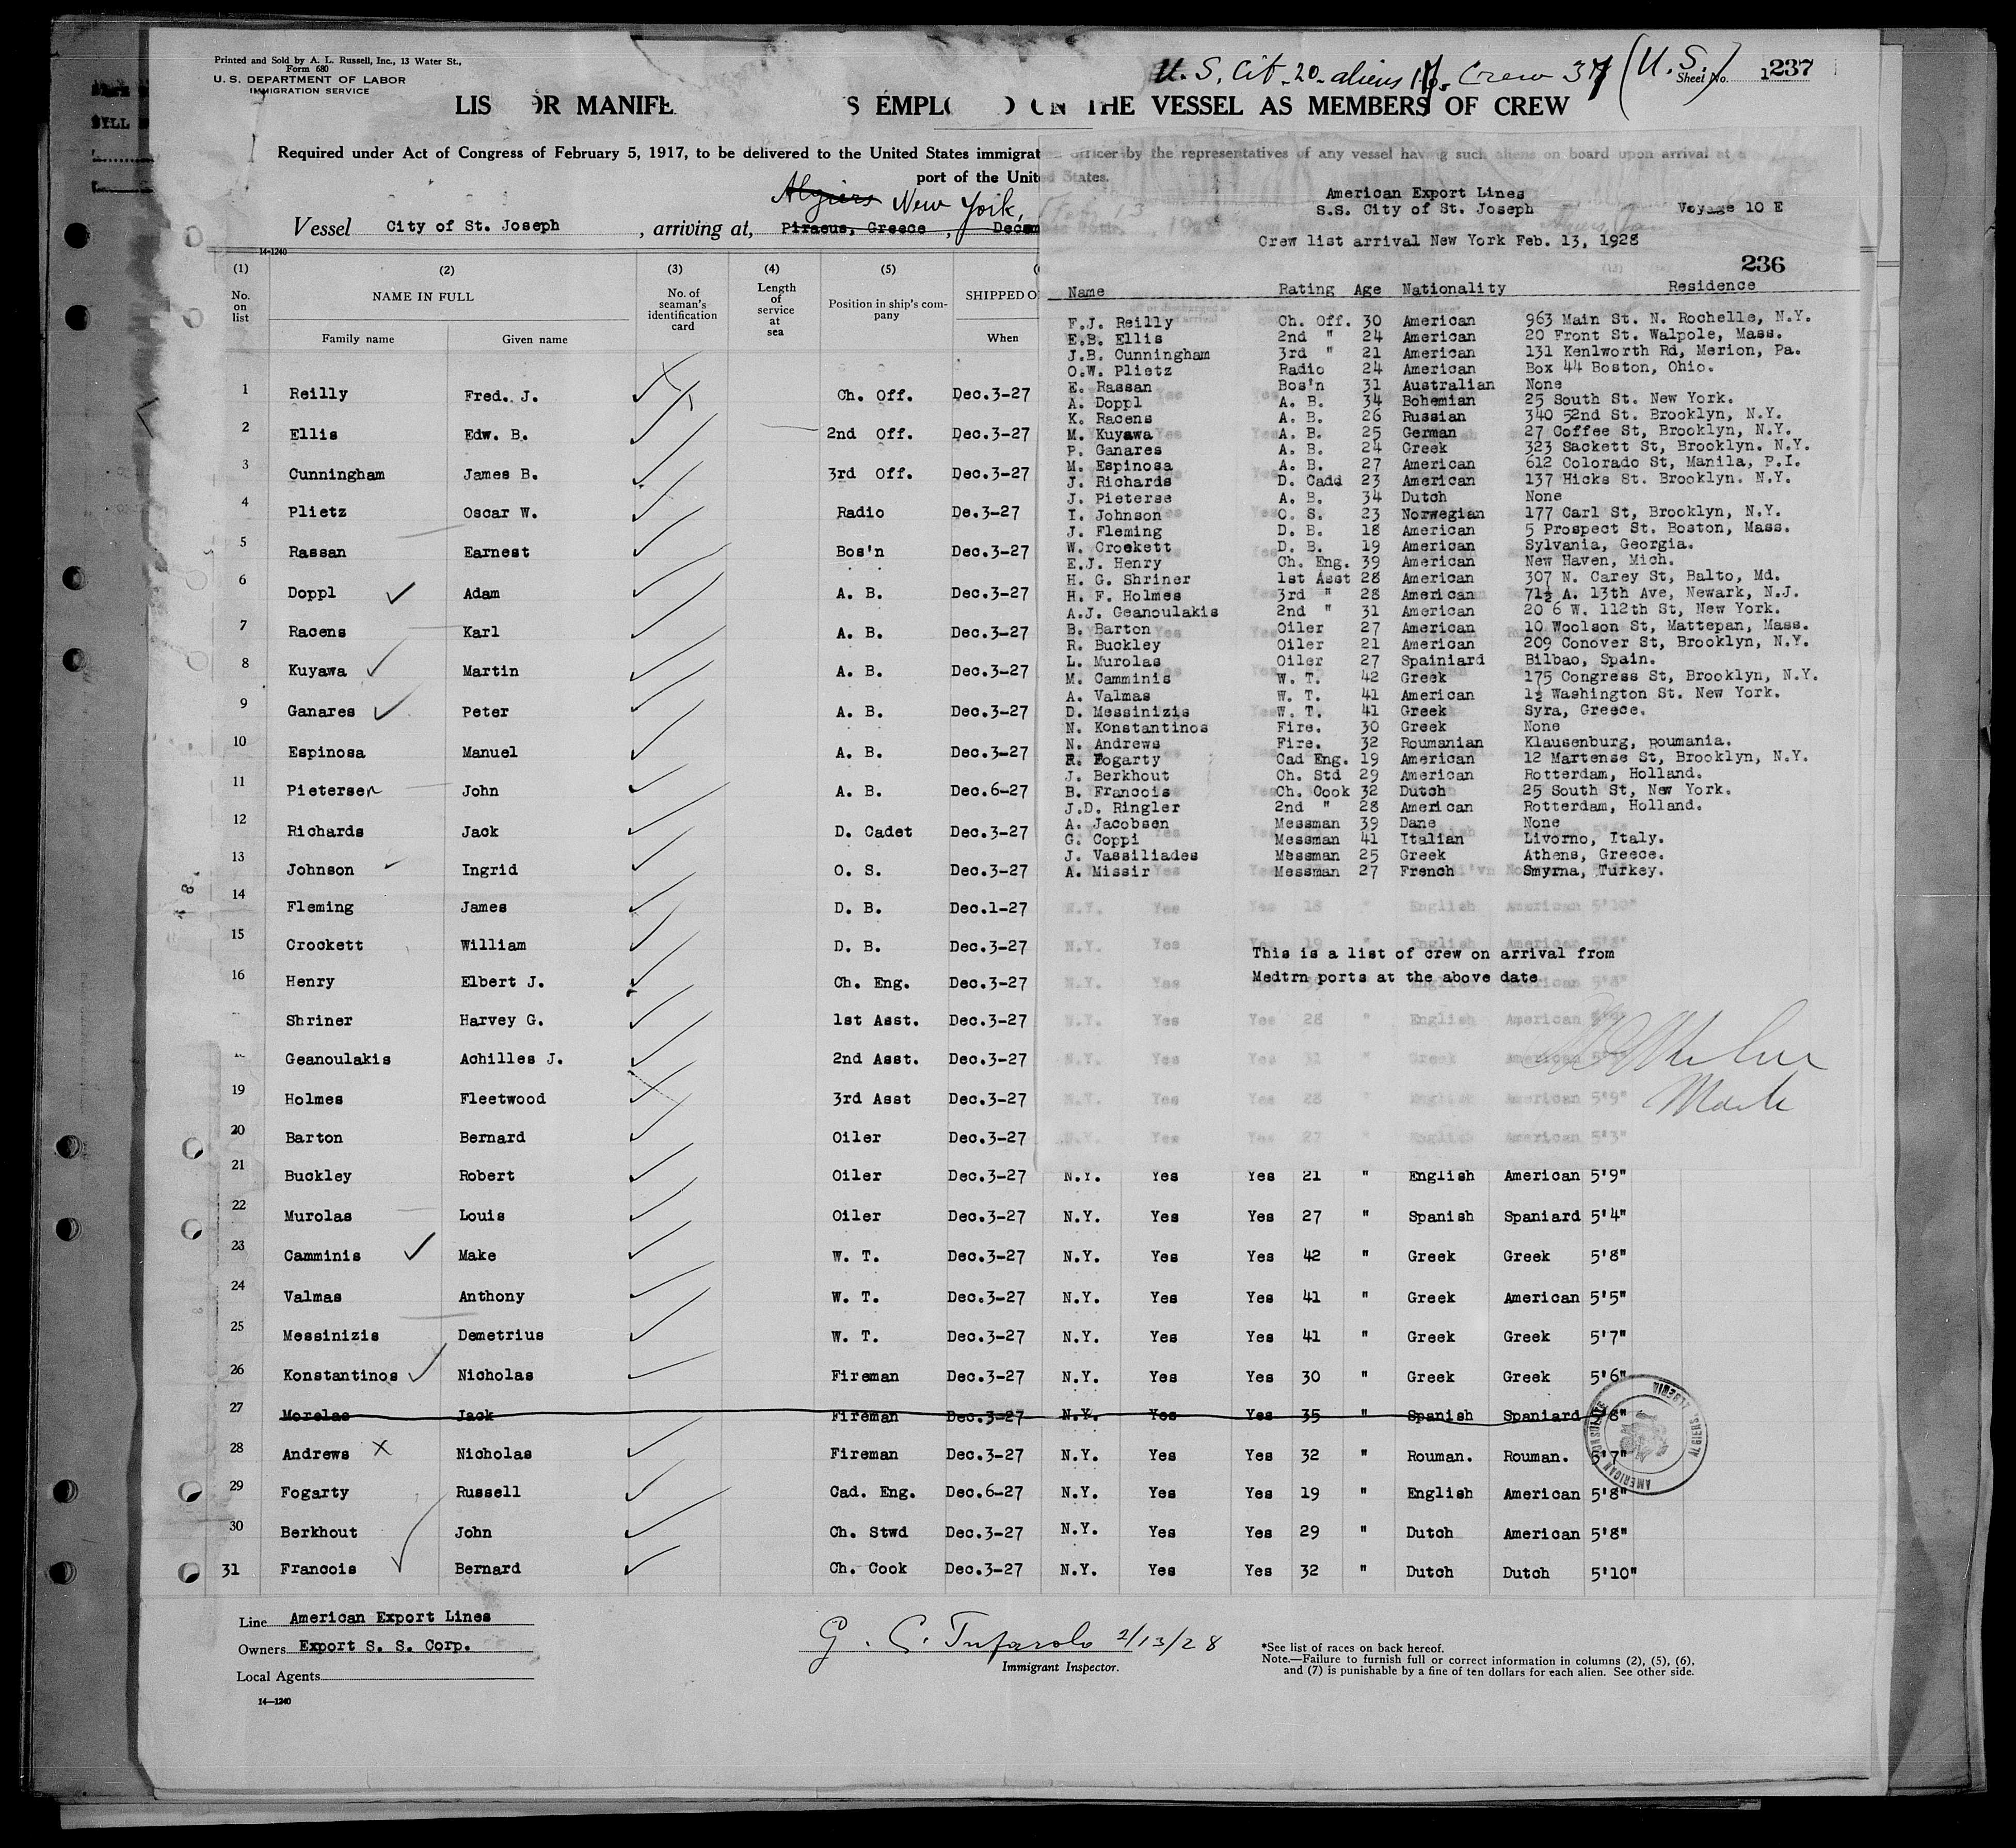 Printed and Sold by A. L. Russell, Inc., 13 Water St.,
Form 680
U. S. DEPARTMENT OF LABOR
IMMIGRATION SERVICE
U. S. Cit. 20 - aliens Crew (U. S.)
Sheet No. 1237
LIS OR MANIFE S EMPL ON THE VESSEL AS MEMBERS OF CREW
Required under Act of Congress of February 5, 1917, to be delivered to the United States immigrat officer by the representatives of any vessel having such aliens on board upon arrival at a
port of the United States.
Algiers New York,
Vessel City of St. Joseph , arriving at, Piraeus, Greece , Decem
14-1240
(1) (2) (3) (4) (5)
No. on list
NAME IN FULL
Family name Given name
No. of seaman's identification card
Length of service at sea
Position in ship's company
SHIPPED O
When
1 Reilly Fred. J. Ch. Off. Dec.3-27
2 Ellis Edw. B. 2nd Off. Dec.3-27
3 Cunningham James B. 3rd Off. Dec.3-27
4 Plietz Oscar W. Radio De.3-27
5 Rassan Earnest Bos'n Dec.3-27
6 Doppl Adam A. B. Dec.3-27
7 Racens Karl A. B. Dec.3-27
8 Kuyawa Martin A. B. Dec.3-27
9 Ganares Peter A. B. Dec.3-27
10 Espinosa Manuel A. B. Dec.3-27
11 Pietersen John A. B. Dec.6-27
12 Richards Jack D. Cadet Dec.3-27
13 Johnson Ingrid O. S. Dec.3-27
14 Fleming James D. B. Dec.1-27
15 Crockett William D. B. Dec.3-27
16 Henry Elbert J. Ch. Eng. Dec.3-27
Shriner Harvey G. 1st Asst. Dec.3-27
Geanoulakis Achilles J. 2nd Asst. Dec.3-27
19 Holmes Fleetwood 3rd Asst Dec.3-27
20 Barton Bernard Oiler Dec.3-27
21 Buckley Robert Oiler Dec.3-27 N.Y. Yes Yes 21 " English American 5'9"
22 Murolas Louis Oiler Dec.3-27 N.Y. Yes Yes 27 " Spanish Spaniard 5'4"
23 Camminis Make W. T. Dec.3-27 N.Y. Yes Yes 42 " Greek Greek 5'8"
24 Valmas Anthony W. T. Dec.3-27 N.Y. Yes Yes 41 " Greek American 5'5"
25 Messinizis Demetrius W. T. Dec.3-27 N.Y. Yes Yes 41 " Greek Greek 5'7"
26 Konstantinos Nicholas Fireman Dec.3-27 N.Y. Yes Yes 30 " Greek Greek 5'6"
27 Morelas Jack Fireman Dec.3-27 N.Y. Yes Yes 35 " Spanish Spaniard 5'8"
28 Andrews Nicholas Fireman Dec.3-27 N.Y. Yes Yes 32 " Rouman. Rouman. 5'7"
29 Fogarty Russell Cad. Eng. Dec.6-27 N.Y. Yes Yes 19 " English American 5'8"
30 Berkhout John Ch. Stwd Dec.3-27 N.Y. Yes Yes 29 " Dutch American 5'8"
31 Francois Bernard Ch. Cook Dec.3-27 N.Y. Yes Yes 32 " Dutch Dutch 5'10"
AMERICAN CONSULATE ALGIERS ALGERIA
American Export Lines
S.S. City of St. Joseph Voyage 10 E
Crew list arrival New York Feb. 13, 1928
236
Name Rating Age Nationality Residence
F.J. Reilly Ch. Off. 30 American 963 Main St. N. Rochelle, N.Y.
E.B. Ellis 2nd " 24 American 20 Front St. Walpole, Mass.
J.B. Cunningham 3rd " 21 American 131 Kenlworth Rd, Merion, Pa.
O.W. Plietz Radio 24 American Box 44 Boston, Ohio.
E. Rassan Bos'n 31 Australian None
A. Doppl A. B. 34 Bohemian 25 South St. New York.
K. Racens A. B. 26 Russian 340 52nd St. Brooklyn, N.Y.
M. Kuyawa A. B. 25 German 27 Coffee St, Brooklyn, N.Y.
P. Ganares A. B. 24 Greek 323 Sackett St, Brooklyn. N.Y.
M. Espinosa A. B. 27 American 612 Colorado St, Manila, P.I.
J. Richards D. Cadd 23 American 137 Hicks St. Brooklyn. N.Y.
J. Pieterse A. B. 34 Dutch None
I. Johnson O. S. 23 Norwegian 177 Carl St, Brooklyn, N.Y.
J. Fleming D. B. 18 American 5 Prospect St. Boston, Mass.
W. Crockett D. B. 19 American Sylvania, Georgia.
E.J. Henry Ch. Eng. 39 American New Haven, Mich.
H. G. Shriner 1st Asst 28 American 307 N. Carey St, Balto, Md.
H. F. Holmes 3rd " 28 American 71½ A. 13th Ave, Newark, N.J.
A.J. Geanoulakis 2nd " 31 American 20 6 W. 112th St, New York.
B. Barton Oiler 27 American 10 Woolson St, Mattepan, Mass.
R. Buckley Oiler 21 American 209 Conover St, Brooklyn, N.Y.
L. Murolas Oiler 27 Spainiard Bilbao, Spain.
M. Camminis W. T. 42 Greek 175 Congress St, Brooklyn, N.Y.
A. Valmas W. T. 41 American 1½ Washington St. New York.
D. Messinizis W. T. 41 Greek Syra, Greece.
N. Konstantinos Fire. 30 Greek None
N. Andrews Fire. 32 Roumanian Klausenburg, roumania.
R. Fogarty Cad Eng. 19 American 12 Martense St, Brooklyn, N.Y.
J. Berkhout Ch. Std 29 American Rotterdam, Holland.
B. Francois Ch. Cook 32 Dutch 25 South St, New York.
J.D. Ringler 2nd " 28 American Rotterdam, Holland.
A. Jacobsen Messman 39 Dane None
G. Coppi Messman 41 Italian Livorno, Italy.
J. Vassiliades Messman 25 Greek Athens, Greece.
A. Missir Messman 27 French Smyrna, Turkey.
This is a list of crew on arrival from
Medtrn ports at the above date
Line American Export Lines
Owners Export S. S. Corp.
Local Agents
14-1240
G. C. Tufarolo 2/13/28
Immigrant Inspector.
*See list of races on back hereof.
Note.—Failure to furnish full or correct information in columns (2), (5), (6),
and (7) is punishable by a fine of ten dollars for each alien. See other side.